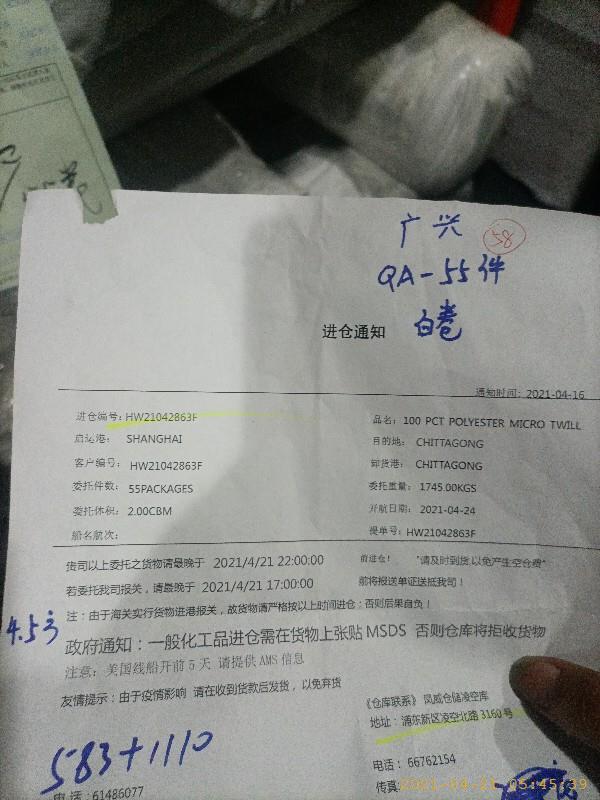 广兴 58
QA-55件
白卷
进仓通知
通知时间：2021-04-16
进仓编号：HW21042863F
品名：100 PCT POLYESTER MICRO TWILL
启运港： SHANGHAI
目的地： CHITTAGONG
客户编号： HW21042863F
卸货港： CHITTAGONG
委托件数： 55PACKAGES
委托重量： 1745.00KGS
委托体积： 2.00CBM
开航日期： 2021-04-24
船名航次：
提单号：HW21042863F
贵司以上委托之货物请最晚于 2021/4/21 22:00:00 前进仓！ "请及时到货,以免产生空仓费"
若委托我司报关，请最晚于 2021/4/21 17:00:00 前将报送单证送抵我司！
注：由于海关实行货物进港报关，故货物请严格按以上时间进仓；否则后果自负！
4.5方
政府通知：一般化工品进仓需在货物上张贴 MSDS 否则仓库将拒收货物
注意：美国线船开前 5 天 请提供 AMS 信息
友情提示：由于疫情影响 请在收到货款后发货，以免弃货
《仓库联系》 凤威仓储凌空库
地址：浦东新区凌空北路 3160 号
583+1110
电话： 66762154
电话：61486077
传真
2021-04-21 05:45:39